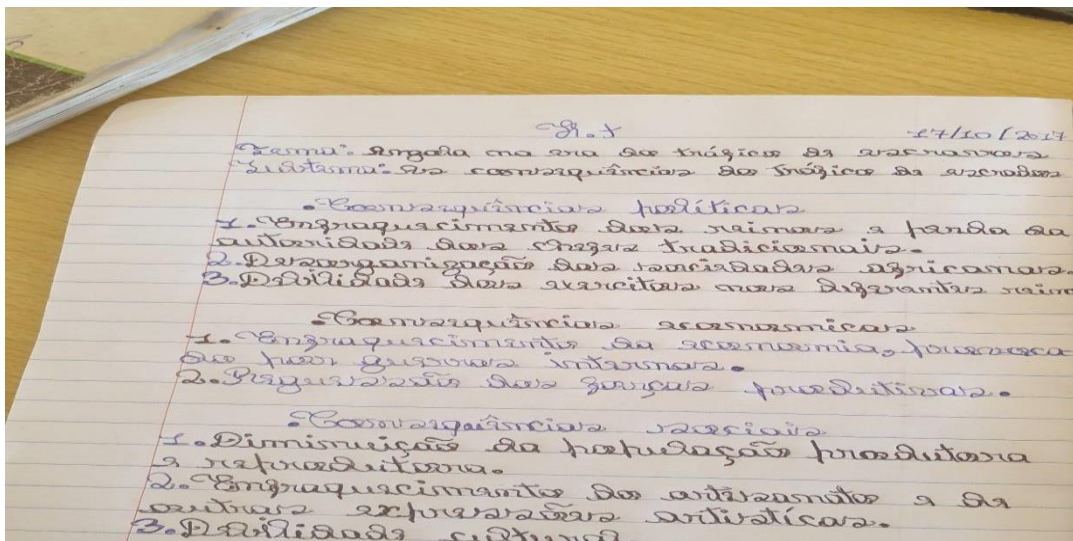 17/10/2017
Tema: Angola na era do tráfico de escravos
Subtema: As consequências do tráfico de escravos
• Consequências políticas
1. Enfraquecimento dos reinos e perda da
autoridade dos chefes tradicionais.
2. Desorganização das sociedades africanas.
3. Debilidade dos exercitos nos diferentes reino
• Consequências economicas
1. Enfraquecimento da economia, provoca
do por guerras internas.
2. das forças produtivas.
• Consequências sociais
1. Diminuição da população produtora
e reprodutora.
2. Enfraquecimento do artizanato e de
outras expressões artisticas.
3. Debilidade cultural